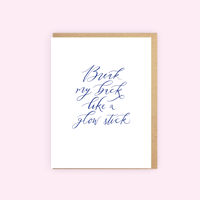 Break
my back
like a
glow stick